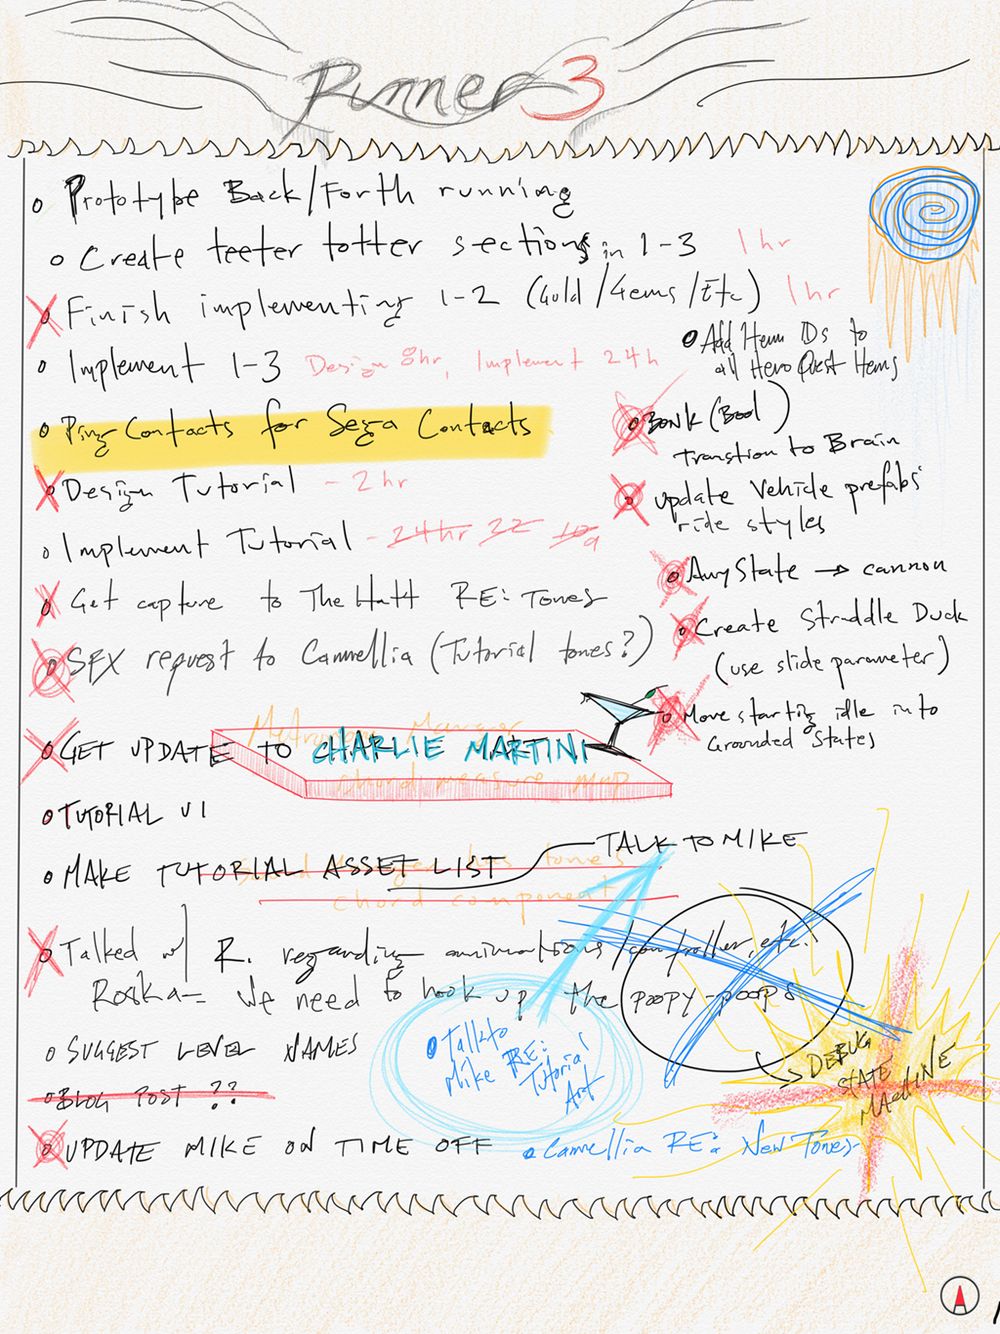 Runner3
Prototype Back/Forth running
Create teeter totter sections in 1-3 1hr
Finish implementing 1-2 (Gold/Gems/Etc) 1hr
Implement 1-3 Design 8hr, Implement 24h
Ping Contacts for Sega Contacts
Design Tutorial - 2hr
Implement Tutorial - 24hr 32
Get capture to The Hatt RE: Tones
SFX request to Cammellia (Tutorial tones?)
GET UPDATE TO CHARLIE MARTINI
Manager
chord measure map
TUTORIAL UI
MAKE TUTORIAL ASSET LIST
TALK TO MIKE
has tones
chord component
Talked w/ R. regarding animations/controller, etc.
Roska - We need to hook up the poopy-poops
SUGGEST LEVEL NAMES
BLOG POST ??
UPDATE MIKE ON TIME OFF
Add Item IDs to
all Hero Quest Items
BONK (Bool)
Transtion to Brain
update Vehicle prefabs'
ride styles
AnyState → cannon
Create Straddle Duck
(use slide parameter)
Move starting idle into
Grounded States
Talk to
Mike RE:
Tutorial
Art
DEBUG
STATE
MACHINE
Cammellia RE: New Tones